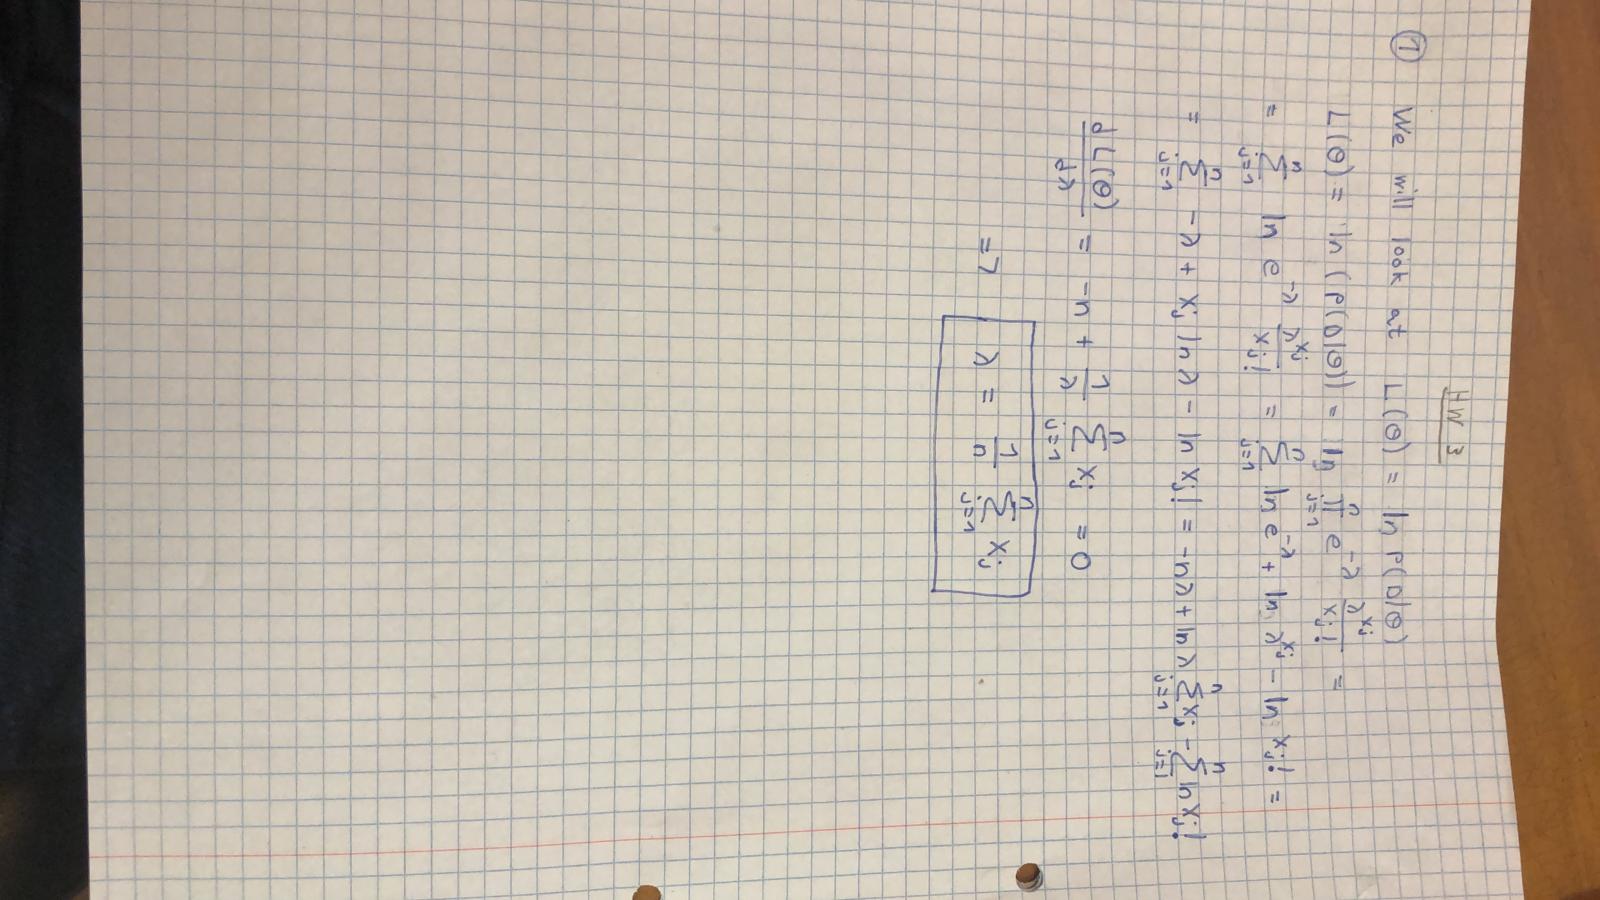 HW 3
① We will look at L(θ) = ln P(D|θ)
L(θ) = ln (P(D|θ)) = ln ∏_{j=1}^{n} e^{-λ} λ^{x_j}/x_j! =
= ∑_{j=1}^{n} ln e^{-λ} λ^{x_j}/x_j! = ∑_{j=1}^{n} ln e^{-λ} + ln λ^{x_j} - ln x_j! =
= ∑_{j=1}^{n} -λ + x_j ln λ - ln x_j! = -nλ + ln λ ∑_{j=1}^{n} x_j - ∑_{j=1}^{n} ln x_j!
dL(θ)/dλ = -n + 1/λ ∑_{j=1}^{n} x_j = 0
=> λ = 1/n ∑_{j=1}^{n} x_j